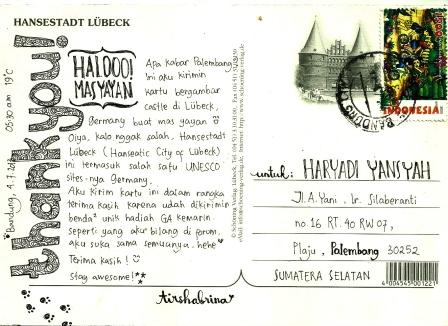 HANSESTADT LÜBECK
thank you!
Bandung, 4.7.2012
05:30 am 19°C
HALOOO!
MAS YAYAN
Apa kabar Palembang?
Ini aku kirimin
kartu bergambar
castle di Lübeck,
Germany buat mas yayan
Oiya, kalo nggak salah, Hansestadt
Lübeck (Hanseatic City of Lübeck)
ini termasuk salah satu UNESCO
sites-nya Germany.
Aku kirim kartu ini dalam rangka
terima kasih karena udah dikirimin
benda² unik hadiah GA kemarin.
seperti yang aku bilang di prom,
aku suka sama semuanya. hehe
Terima kasih!
Stay awesome!
Airshabrina
INDONESIA
BANDUNG
untuk: HARYADI YANSYAH
Jl. A. Yani. Lr. Silaberanti
no. 16 RT. 40 RW 07,
Plaju, Palembang 30252
SUMATERA SELATAN
4 004545 001221